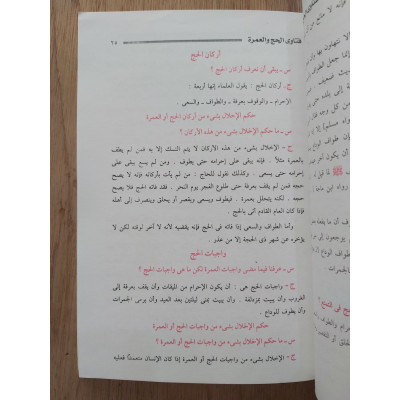 فتاوى الحج والعمرة
٦٥
أركان الحج
س ـ يبقى أن نعرف أركان الحج ؟
ج ـ أركان الحج : يقول العلماء إنها أربعة :
الإحرام ـ والوقوف بعرفة ـ والطواف ـ والسعى .
حكم الإخلال بشىء من أركان الحج أو العمرة
س ـ ما حكم الإخلال بشىء من هذه الأركان ؟
ج ـ الإخلال بشىء من هذه الأركان لا يتم النسك إلا به فمن لم يطف
بالعمرة مثلاً ، فإنه يبقى على إحرامه حتى يطوف . ومن لم يسع يبقى على
إحرامه حتى يسعى . وكذلك نقول للحاج : من لم يأت بأركانه فإنه لا يصح
حجه فمن لم يقف بعرفة حتى طلوع الفجر يوم النحر ، فقد فاته الحج فلا يصح
حجه ، لكنه يتحلل بعمرة . فيطوف ويسعى ويقصر أو يحلق وينصرف إلى أهله
فإذا كان العام القادم أتى بالحج .
وأما الطواف والسعى إذا فاته فى الحج فإنه يقضيه لأنه لا آخر لوقته لكن لا
يؤخره عن شهر ذى الحجة إلا من عذر .
واجبات الحج
س ـ عرفنا فيما مضى واجبات العمرة لكن ما هى واجبات الحج ؟
ج ـ واجبات الحج هى : أن يكون الإحرام من الميقات وأن يقف بعرفة إلى
الغروب وأن يبيت بمزدلفة . وأن يبيت بمنى ليلتين بعد العيد وأن يرمى الجمرات
وأن يطوف للوداع .
حكم الإخلال بشىء من واجبات الحج أو العمرة
س ـ ما حكم الإخلال بشىء من واجبات الحج أو العمرة ؟
ج ـ الإخلال بشىء من واجبات الحج أو العمرة إذا كان الإنسان متعمدًا فعليه